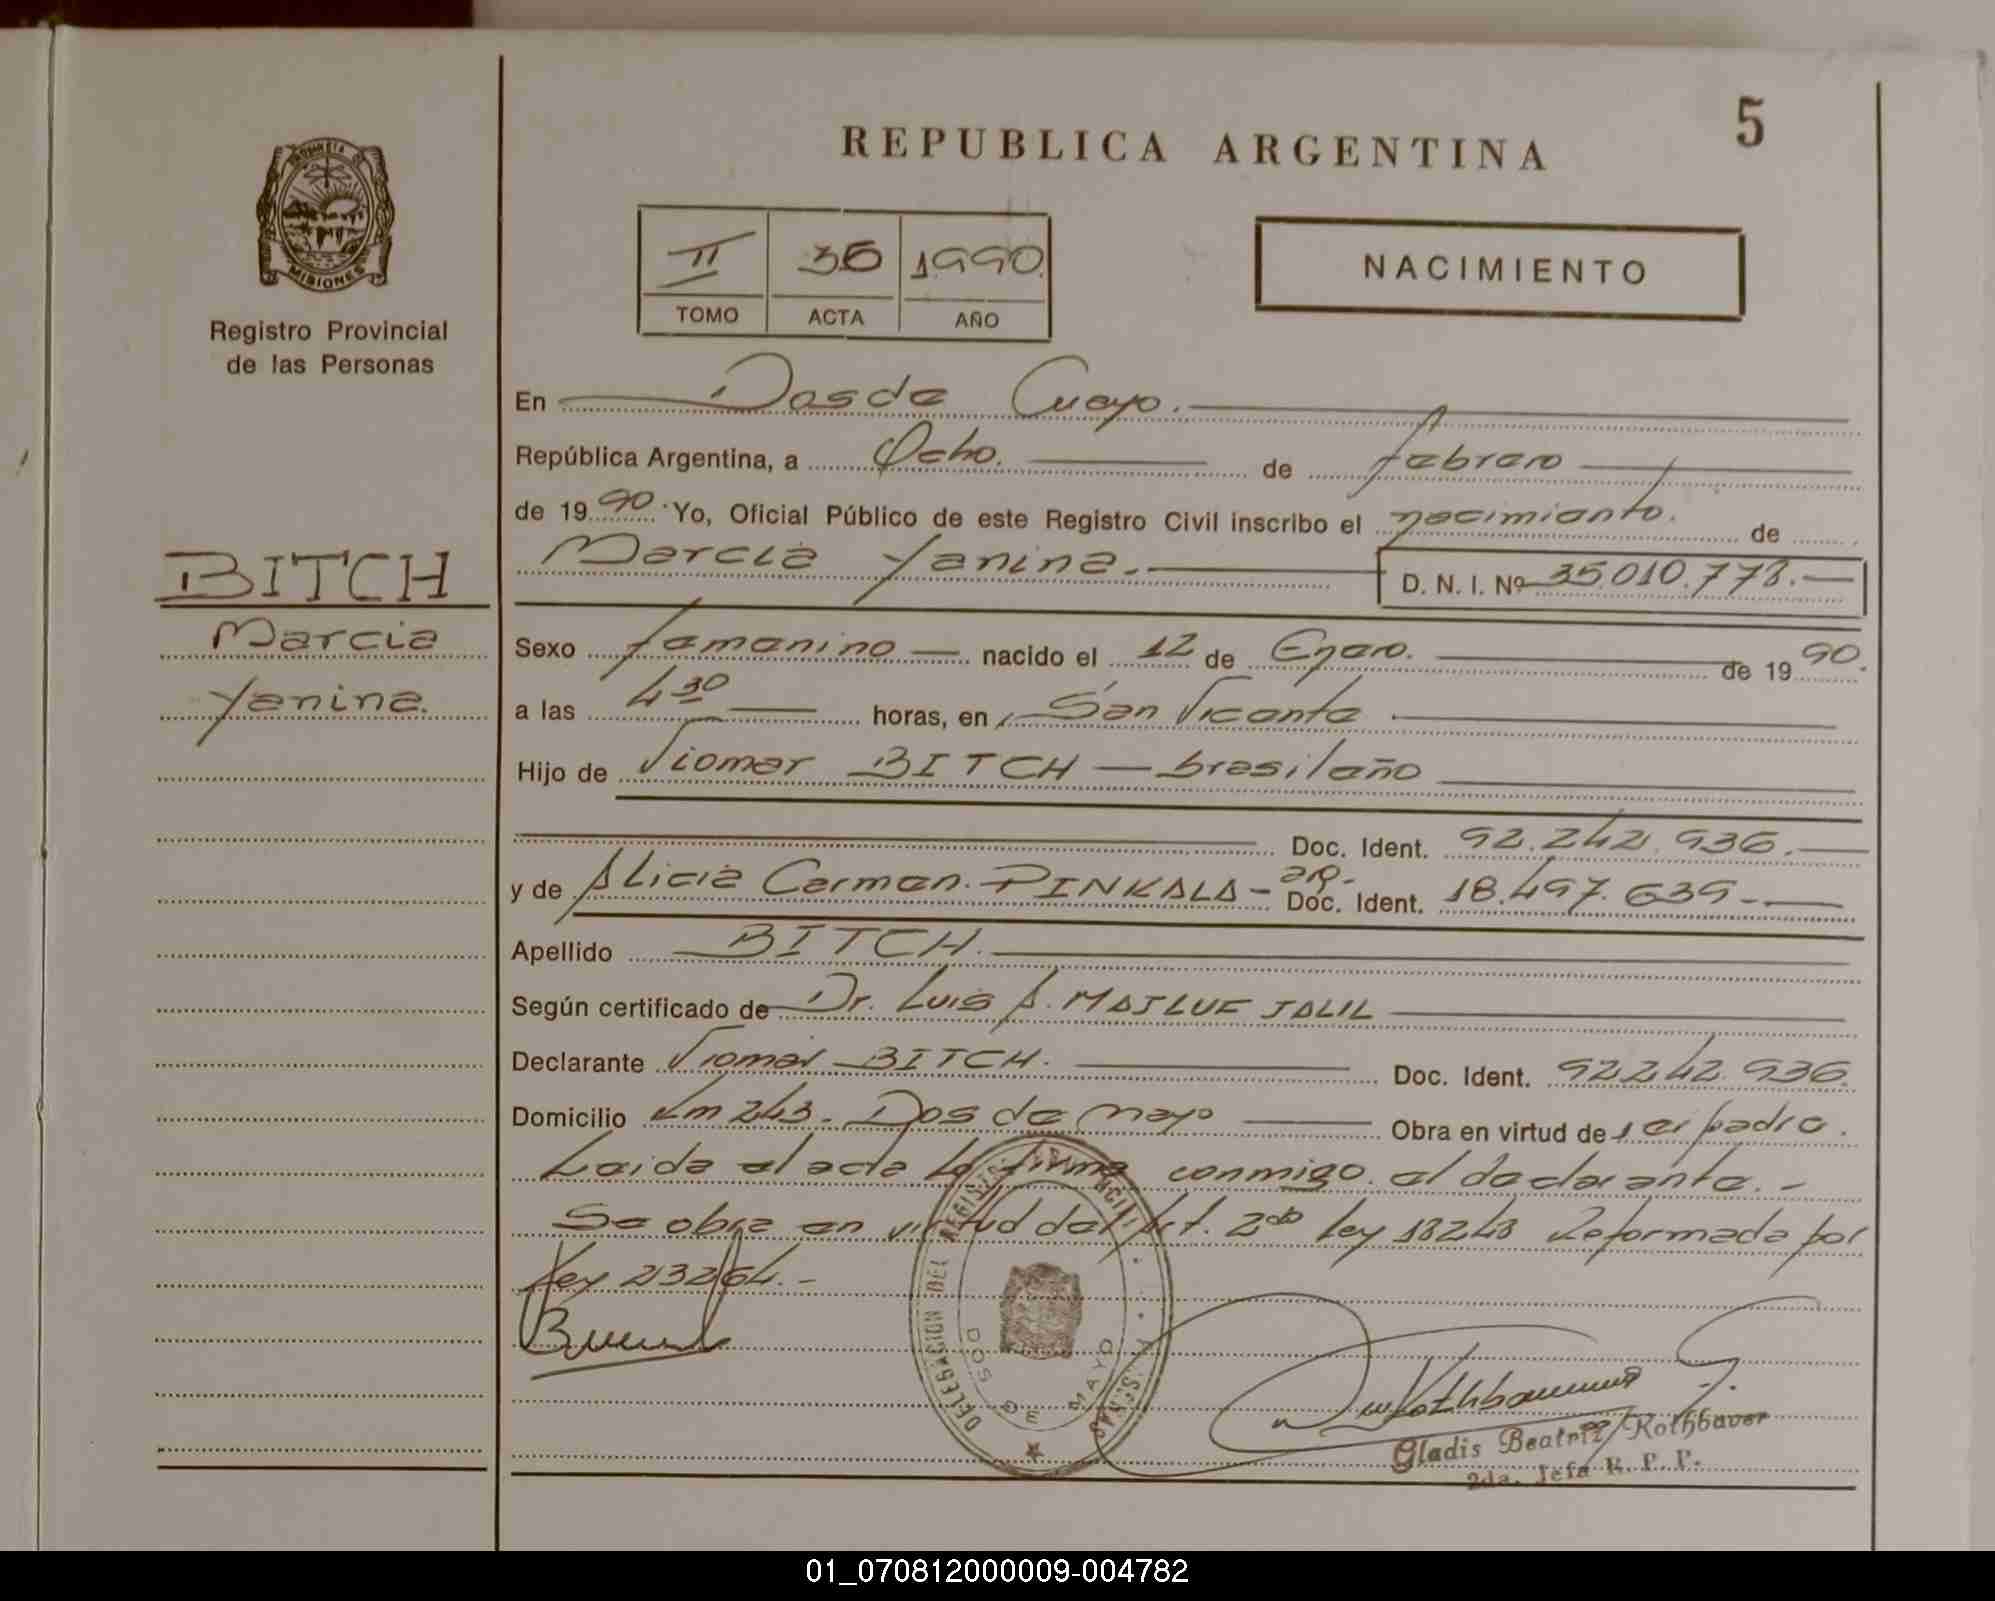 5
REPUBLICA ARGENTINA
PROVINCIA DE
MISIONES
Registro Provincial
de las Personas
II 36 1990.
TOMO ACTA AÑO
NACIMIENTO
BITCH
Marcia
Yanina.
En Dos de Mayo.
República Argentina, a Ocho. de febrero
de 1990 Yo, Oficial Público de este Registro Civil inscribo el nacimiento. de
Marcia Yanina. D. N. I. Nº 35.010.778.
Sexo femenino nacido el 12 de Enero. de 1990.
a las 4 30 horas, en San Vicente
Hijo de Viomar BITCH — brasileño
Doc. Ident. 92.242.936.
y de Alicia Carmen. PINKALA - ar. Doc. Ident. 18.497.639
Apellido BITCH.
Según certificado de Dr. Luis A. MAJLUF JALIL
Declarante Viomar BITCH. Doc. Ident. 92242.936.
Domicilio Km 243. Dos de mayo Obra en virtud de ser el padre.
Leida el acta la firma conmigo. el declarante. -
Se obra en virtud del Art. 2do ley 18248 Reformada por
Ley 23264. -
DELEGACION DEL REGISTRO PROVINCIAL
DOS DE MAYO
MISIONES
Gladis Beatriz Rothbaver
2da. Jefa R. P. P.
01_070812000009-004782